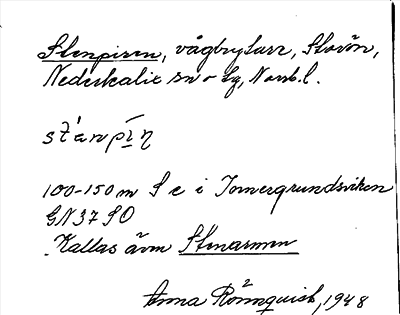 Stenpiren, vågbrytare, Storön,
Nederkalix sn o lg, Norrb.l.
stánpìṇ
100-150 m S c i Tomergrundsviken
GN 37 SO
Kallas även Stenarmen
Anna Rönnquist, 1948